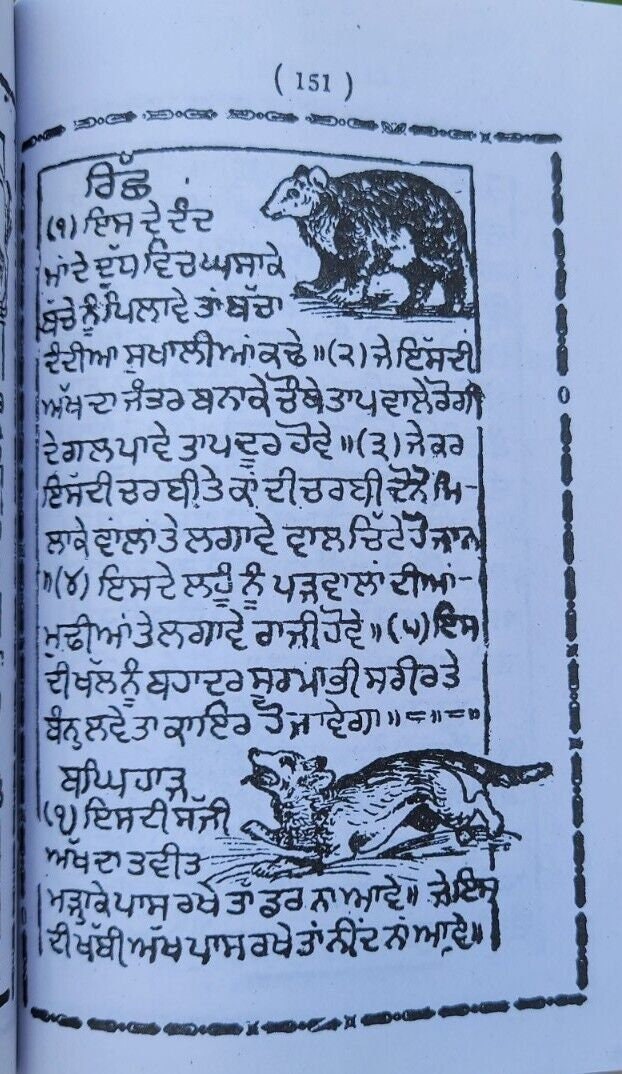 ( 151 )
ਰਿੱਛ
(੧) ਇਸ ਦੇ ਦੰਦ
ਮਾਂ ਦੇ ਦੁੱਧ ਵਿਚ ਘਸਾਕੇ
ਬੱਚੇ ਨੂੰ ਪਿਲਾਵੇ ਤਾਂ ਬੱਚਾ
ਦੰਦੀਆ ਸੁਖਾਲੀਆਂ ਕਢੇ॥(੨) ਜੇ ਇੱਸਦੀ
ਅੱਖ ਦਾ ਜੰਤਰ ਬਨਾਕੇ ਚੌਥੇ ਤਾਪ ਵਾਲੇ ਰੋਗੀ
ਦੇ ਗਲ ਪਾਵੇ ਤਾਪ ਦੂਰ ਹੋਵੇ॥(੩) ਜੇਕਰ
ਇਸਦੀ ਚਰਬੀ ਤੇ ਕਾਂ ਦੀ ਚਰਬੀ ਦੋਨੋਂ ਮਿ-
ਲਾਕੇ ਵਾਲਾਂ ਤੇ ਲਗਾਵੇ ਵਾਲ ਚਿੱਟੇ ਹੋ ਜਾਨ
॥(੪) ਇਸਦੇ ਲਹੂੰ ਨੂੰ ਪੜਵਾਲਾਂ ਦੀਆਂ-
ਮੁਢੀਆਂ ਤੇ ਲਗਾਵੇ ਰਾਜੀ ਹੋਵੇ॥(੫) ਇਸ
ਦੀ ਖੱਲ ਨੂੰ ਬਹਾਦਰ ਸੂਰਮਾਂ ਭੀ ਸਰੀਰ ਤੇ
ਬੰਨ੍ਹ ਲਵੇ ਤਾ ਕਾਇਰ ਹੋ ਜਾਵੇਗਾ॥=॥=॥
ਬਘਿਹਾੜ
(੧) ਇਸਦੀ ਸੱਜੀ
ਅੱਖ ਦਾ ਤਵੀਤ
ਮੜ੍ਹਾਕੇ ਪਾਸ ਰਖੇ ਤਾਂ ਡਰ ਨਾ ਆਵੇ॥ ਜੇ ਇਸ
ਦੀ ਖੱਬੀ ਅੱਖ ਪਾਸ ਰਖੇ ਤਾਂ ਨੀਂਦ ਨਾਂ ਆਵੇ॥